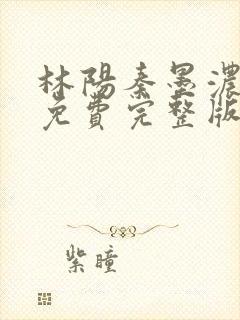 林陽秦墨濃
免費完整版
紫瞳